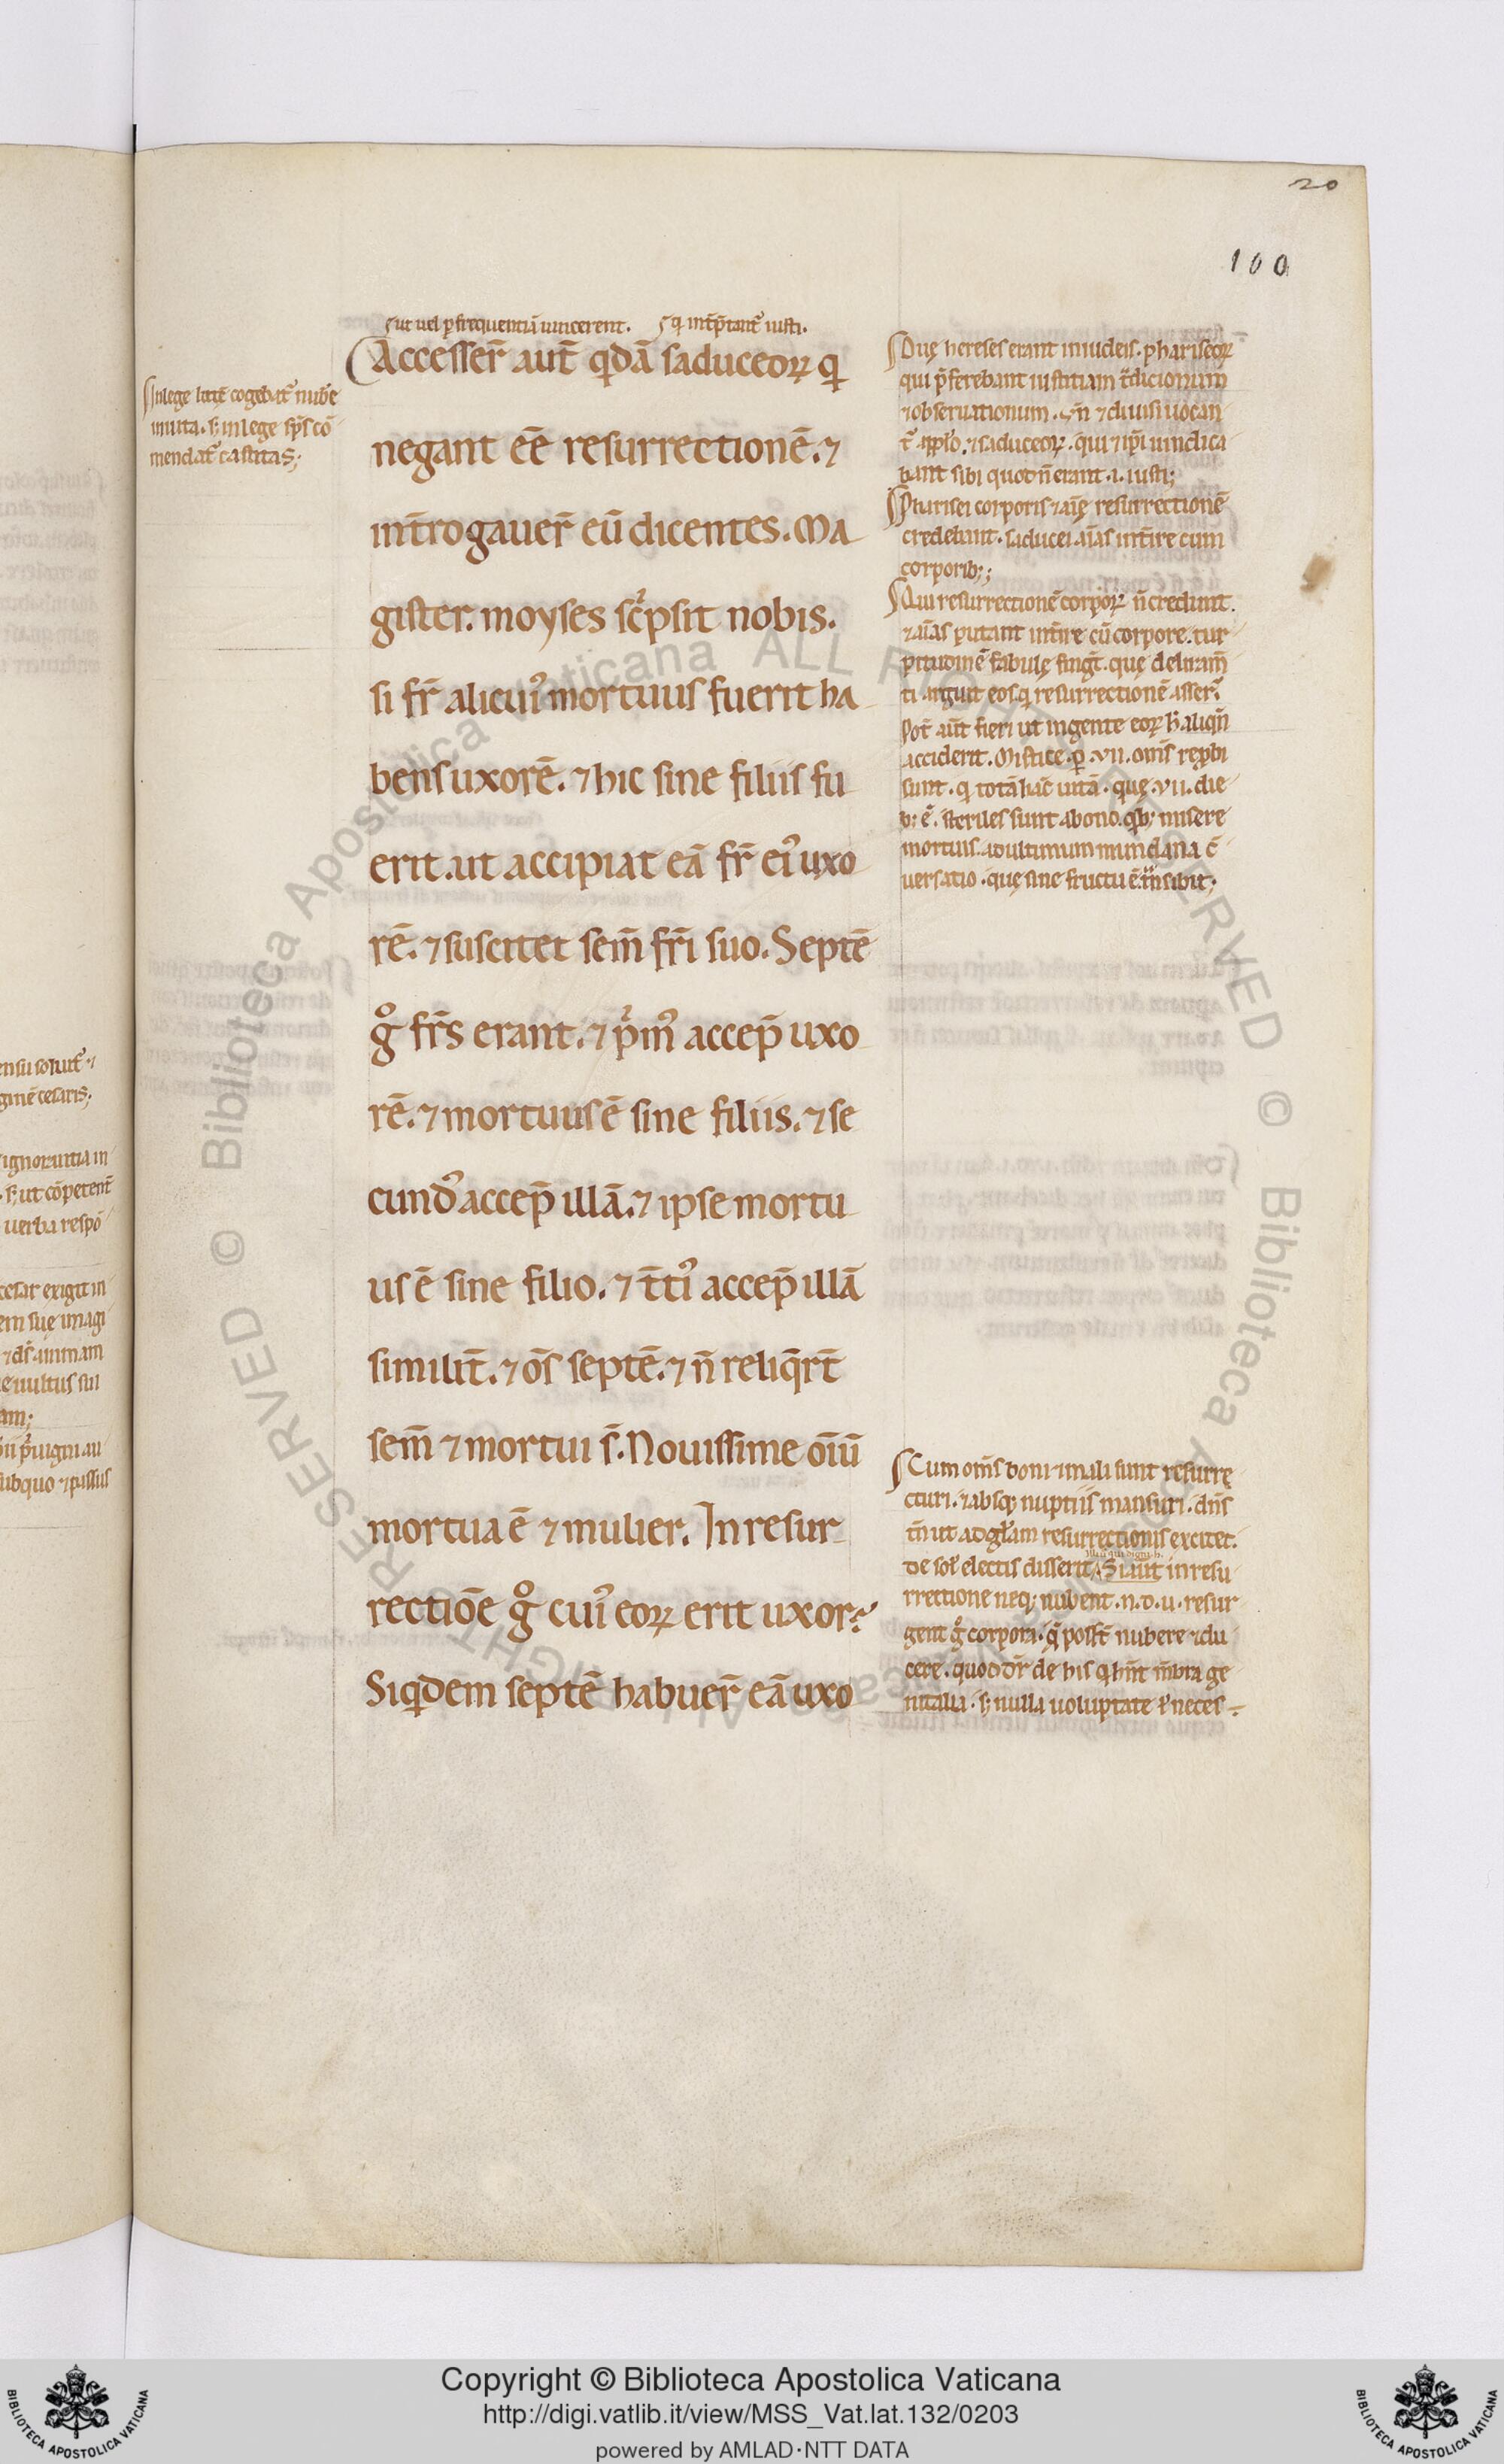 20
100
ut uel ꝑ frequentiā uincerent. q̄ int̄p̄tant᷑ iusti.
Accesser̄ aut̄ qdā saduceoꝝ q
negant ēē resurrectionē. ⁊
int̄rogauer̄ eū dicentes. Ma
gister. moyses scͥpsit nobis.
si fr̄ alicuiꝰ mortuus fuerit ha
bens uxorē. ⁊ hic sine filiis fu
erit. ut accipiat eā fr̄ eiꝰ uxo
rē. ⁊ suscitet sem̄ fr̄i suo. Septē
gͦ fr̄s erant. ⁊ pͥmꝰ accep̄ uxo
rē. ⁊ mortuus ē sine filiis. ⁊ se
cundꝰ accep̄ illā. ⁊ ipse mortu
us ē sine filio. ⁊ t̄tiꝰ accep̄ illā
similit̄. ⁊ om̄s septē. ⁊ n̄ reliq̄rt̄
sem̄ ⁊ mortui s̄. Nouissime oīū
mortua ē ⁊ mulier. In resur
rectiōe gͦ cuiꝰ eoꝝ erit uxor?
Siqdem septē habuer̄ eā uxo
In lege litt̄e cogebat᷑ nub̄e
inuita. s; in lege sp̄s cō
mendat᷑ castitas;
Duę hereses erant in iudeis. phariseoꝝ
qui p̄ferebant iustitiam t̄dicionum
⁊ obseruationum. un̄ ⁊ diuisi uocan
t᷑ a pp̄lo. ⁊ saduceoꝝ. qui ⁊ ip̄i uindica
bant sibi quod n̄ erant .i. iusti;
Pharisei corporis ⁊ aīę resurrectionē
credebant. saducei aīas int̄ire cum
corporib;;
Qui resurrectionē corpoꝝ n̄ credunt.
⁊ aīas putant int̄ire cū corpore. tur
pitudinē fabulę fingt̄. quę deliram̄
ti arguat eos q resurrectionē asser̄t.
Pot̄ aūt fieri ut in gente eoꝝ h̄ aliqn̄
acciderit. Mistice. ꝑ .vii. om̄s rep̄bi
sunt. q totā hāc uitā. quę .vii. die
b; ē. steriles sunt a bono. qb; misere
mortuis. ad ultimum mundana c̄
uersatio. quę sine fructu ē. t̄nsibit;
Cum om̄s boni ⁊ mali sunt resurrę
cturi. ⁊ absq; nuptiis mansuri. dn̄s
tn̄ ut ad gl̄am resurrectionis excitet.
de sol̓ electis disserit. Siunt in resu
rrectione neq; nubent .n. d. u. resur
gent gͦ corpora. q̄ posst̄ nubere ⁊ du
cere. quod dr̄ de his q hn̄t mēbra ge
nitalia. s; nulla uoluptate ł neces
Copyright © Biblioteca Apostolica Vaticana
http://digi.vatlib.it/view/MSS_Vat.lat.132/0203
powered by AMLAD·NTT DATA